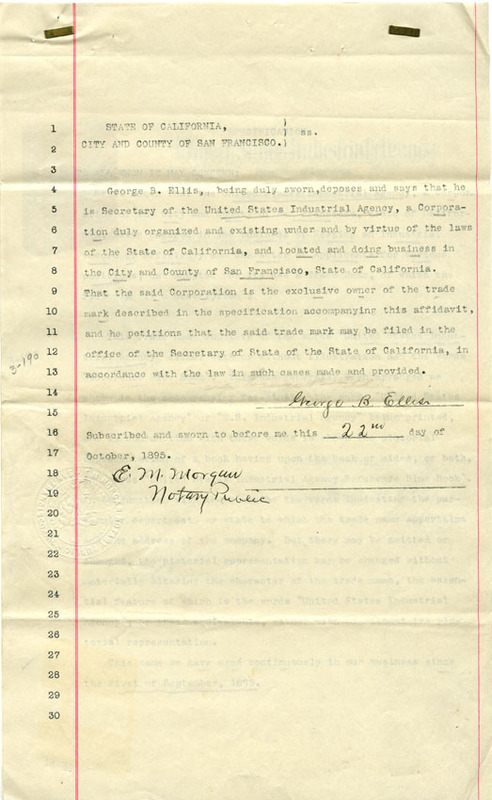 1 STATE OF CALIFORNIA, )
) ss.
2 CITY AND COUNTY OF SAN FRANCISCO.)
3
4 George B. Ellis, being duly sworn,deposes and says that he
5 is Secretary of the United States Industrial Agency, a Corpora-
6 tion duly organized and existing under and by virtue of the laws
7 of the State of California, and located and doing business in
8 the City and County of San Francisco, State of California.
9 That the said Corporation is the exclusive owner of the trade
10 mark described in the specification accompanying this affidavit,
11 and he petitions that the said trade mark may be filed in the
12 office of the Secretary of State of the State of California, in
3-190
13 accordance with the law in such cases made and provided.
14 George B. Ellis
15
16 Subscribed and sworn to before me this 22nd day of
17 October, 1895.
18 E. M. Morgan
19 Notary Public
20
21
22
23
24
25
26
27
28
29
30